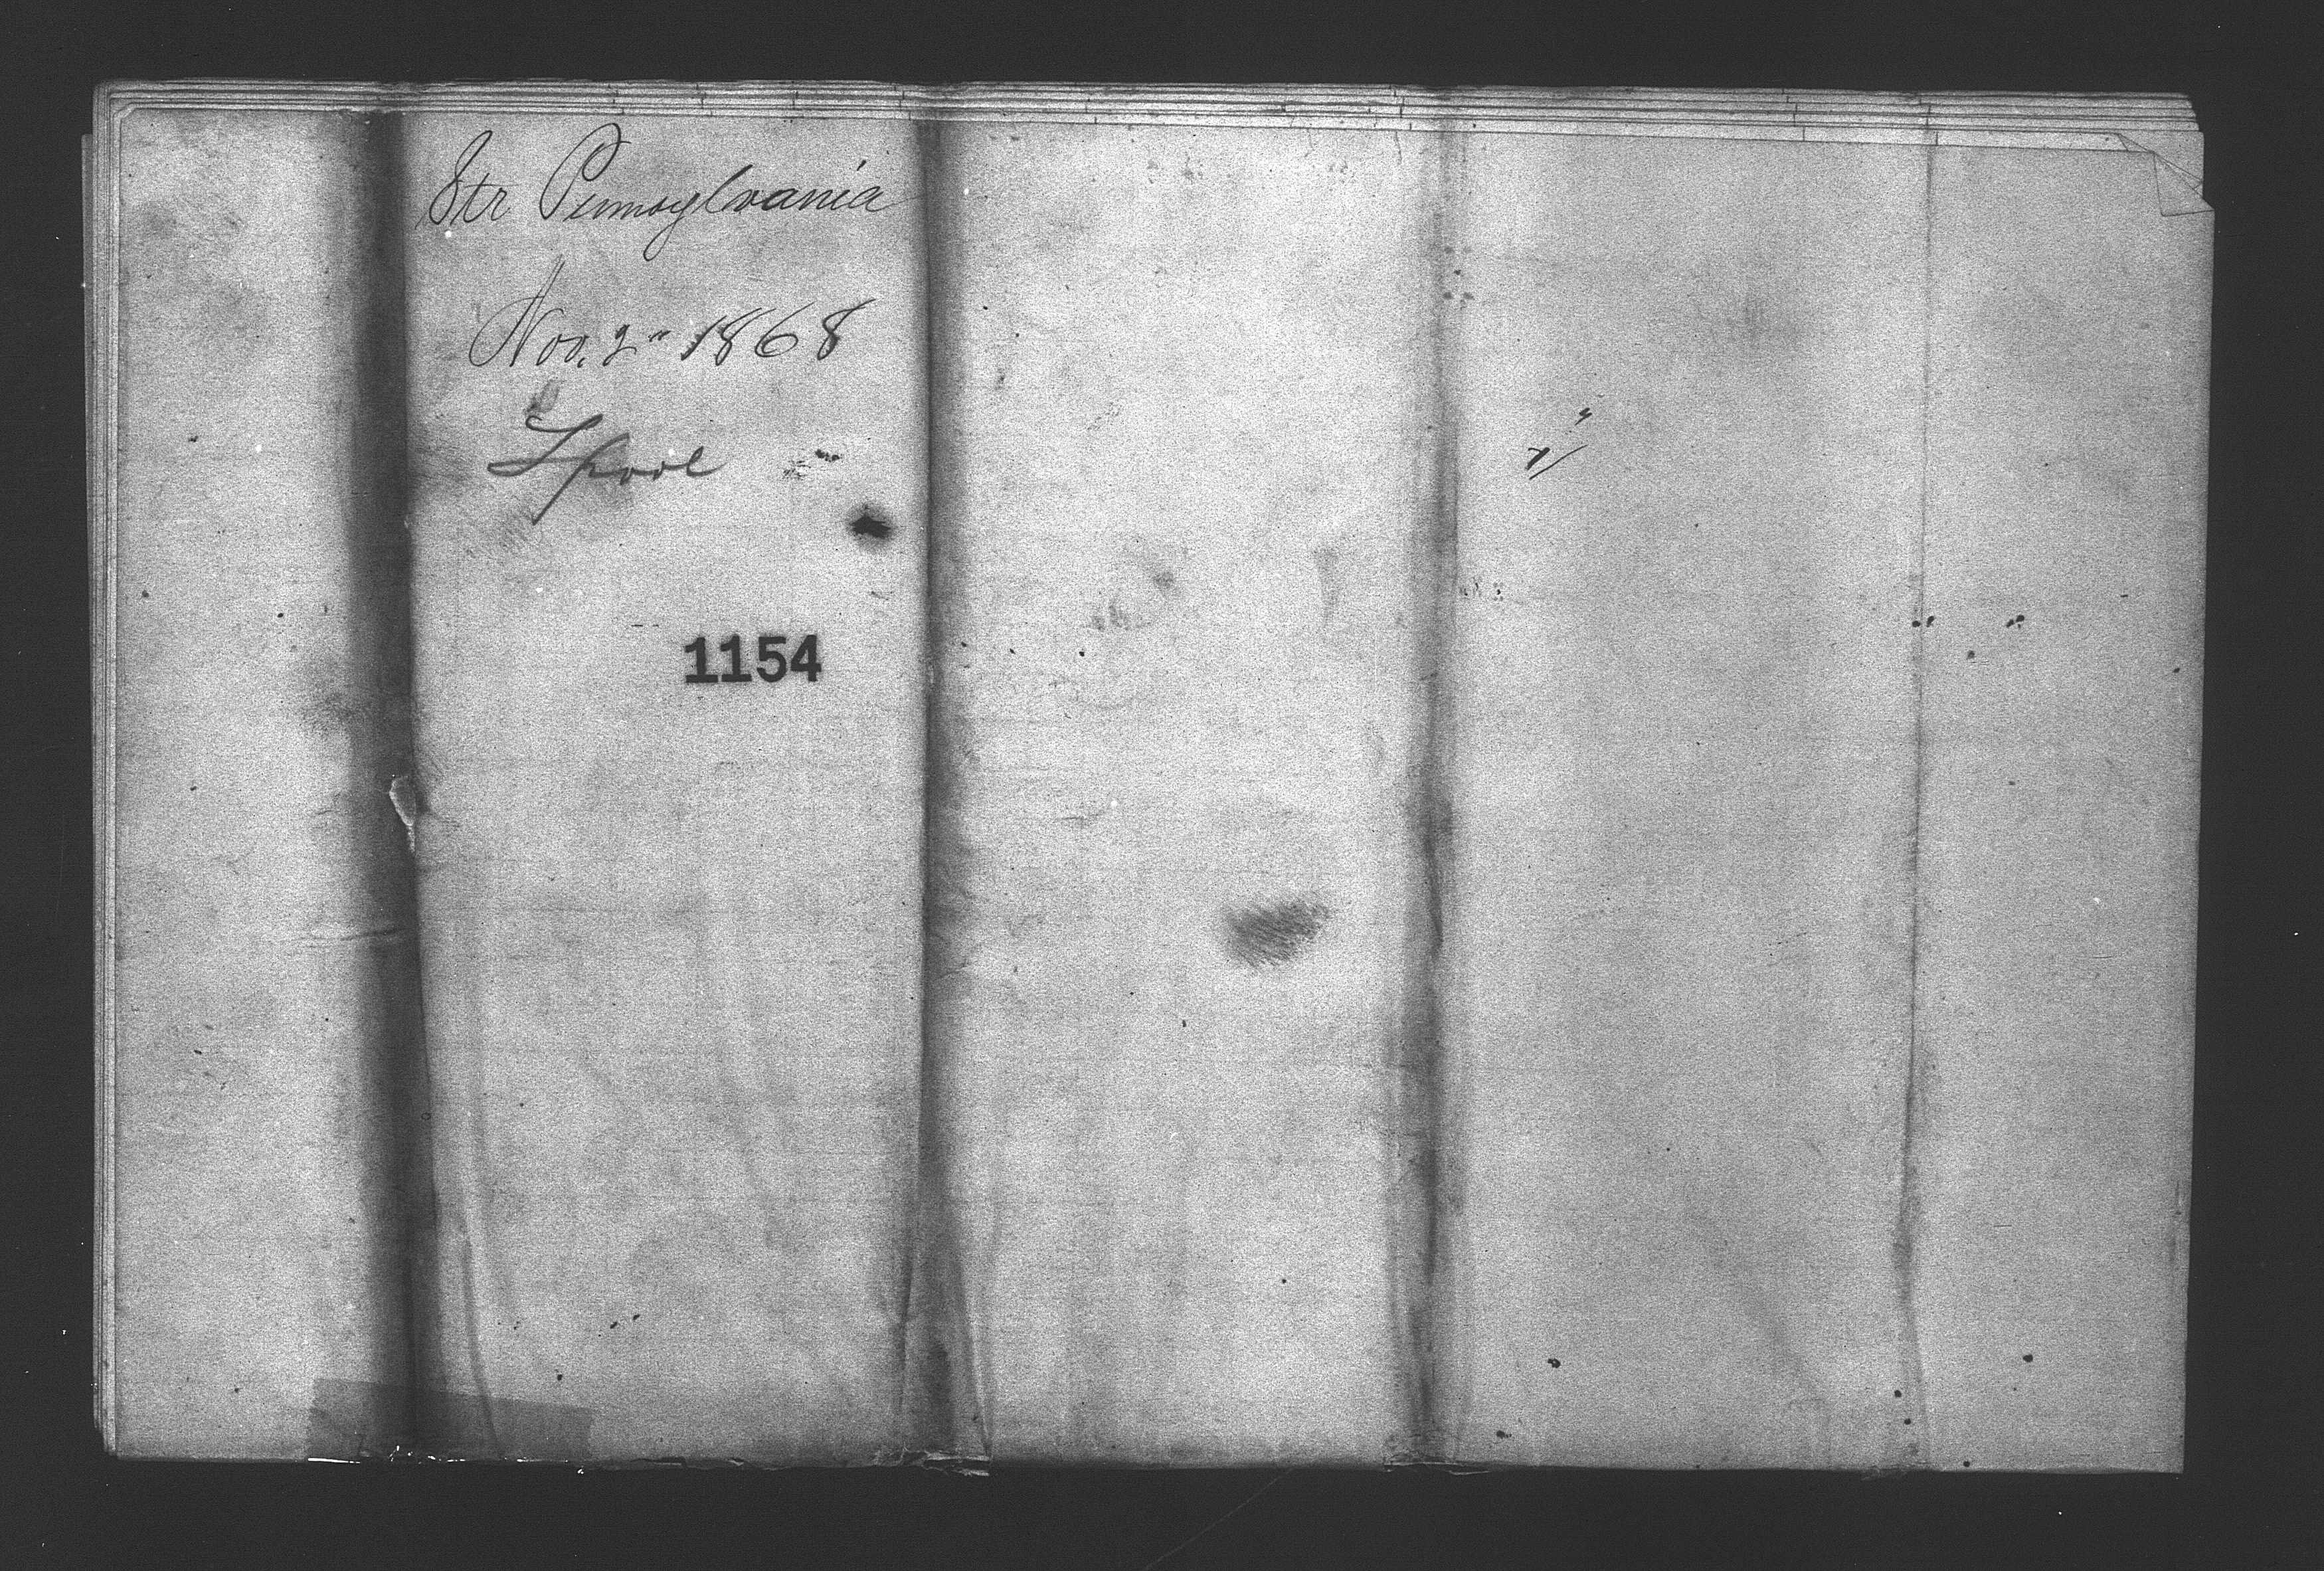 Str Pennsylvania
Nov. 2" 1868
Lpool
1154